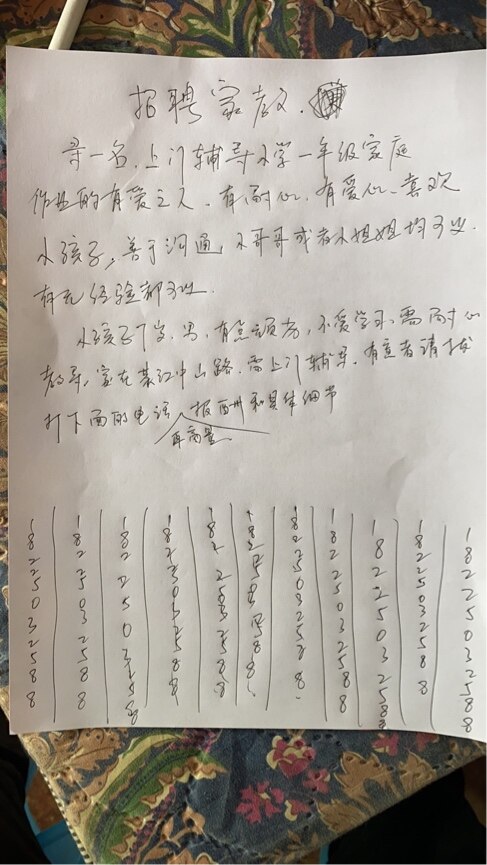 招聘家教.
寻一名,上门辅导小学一年级家庭
作业的有爱之人.有耐心.有爱心、喜欢
小孩子,善于沟通,小哥哥或者小姐姐均可以.
有无经验都可以.
小孩子7岁.男.有点顽劣,不爱学习、需耐心
教导,家在綦江中山路.需上门辅导.有意者请拨
打下面的电话,报酬和具体细节
再商量
18225032588
18225032588
18225032588
18225032588
18225032588
18225032588
18225032588
18225032588
18225032588
18225032588